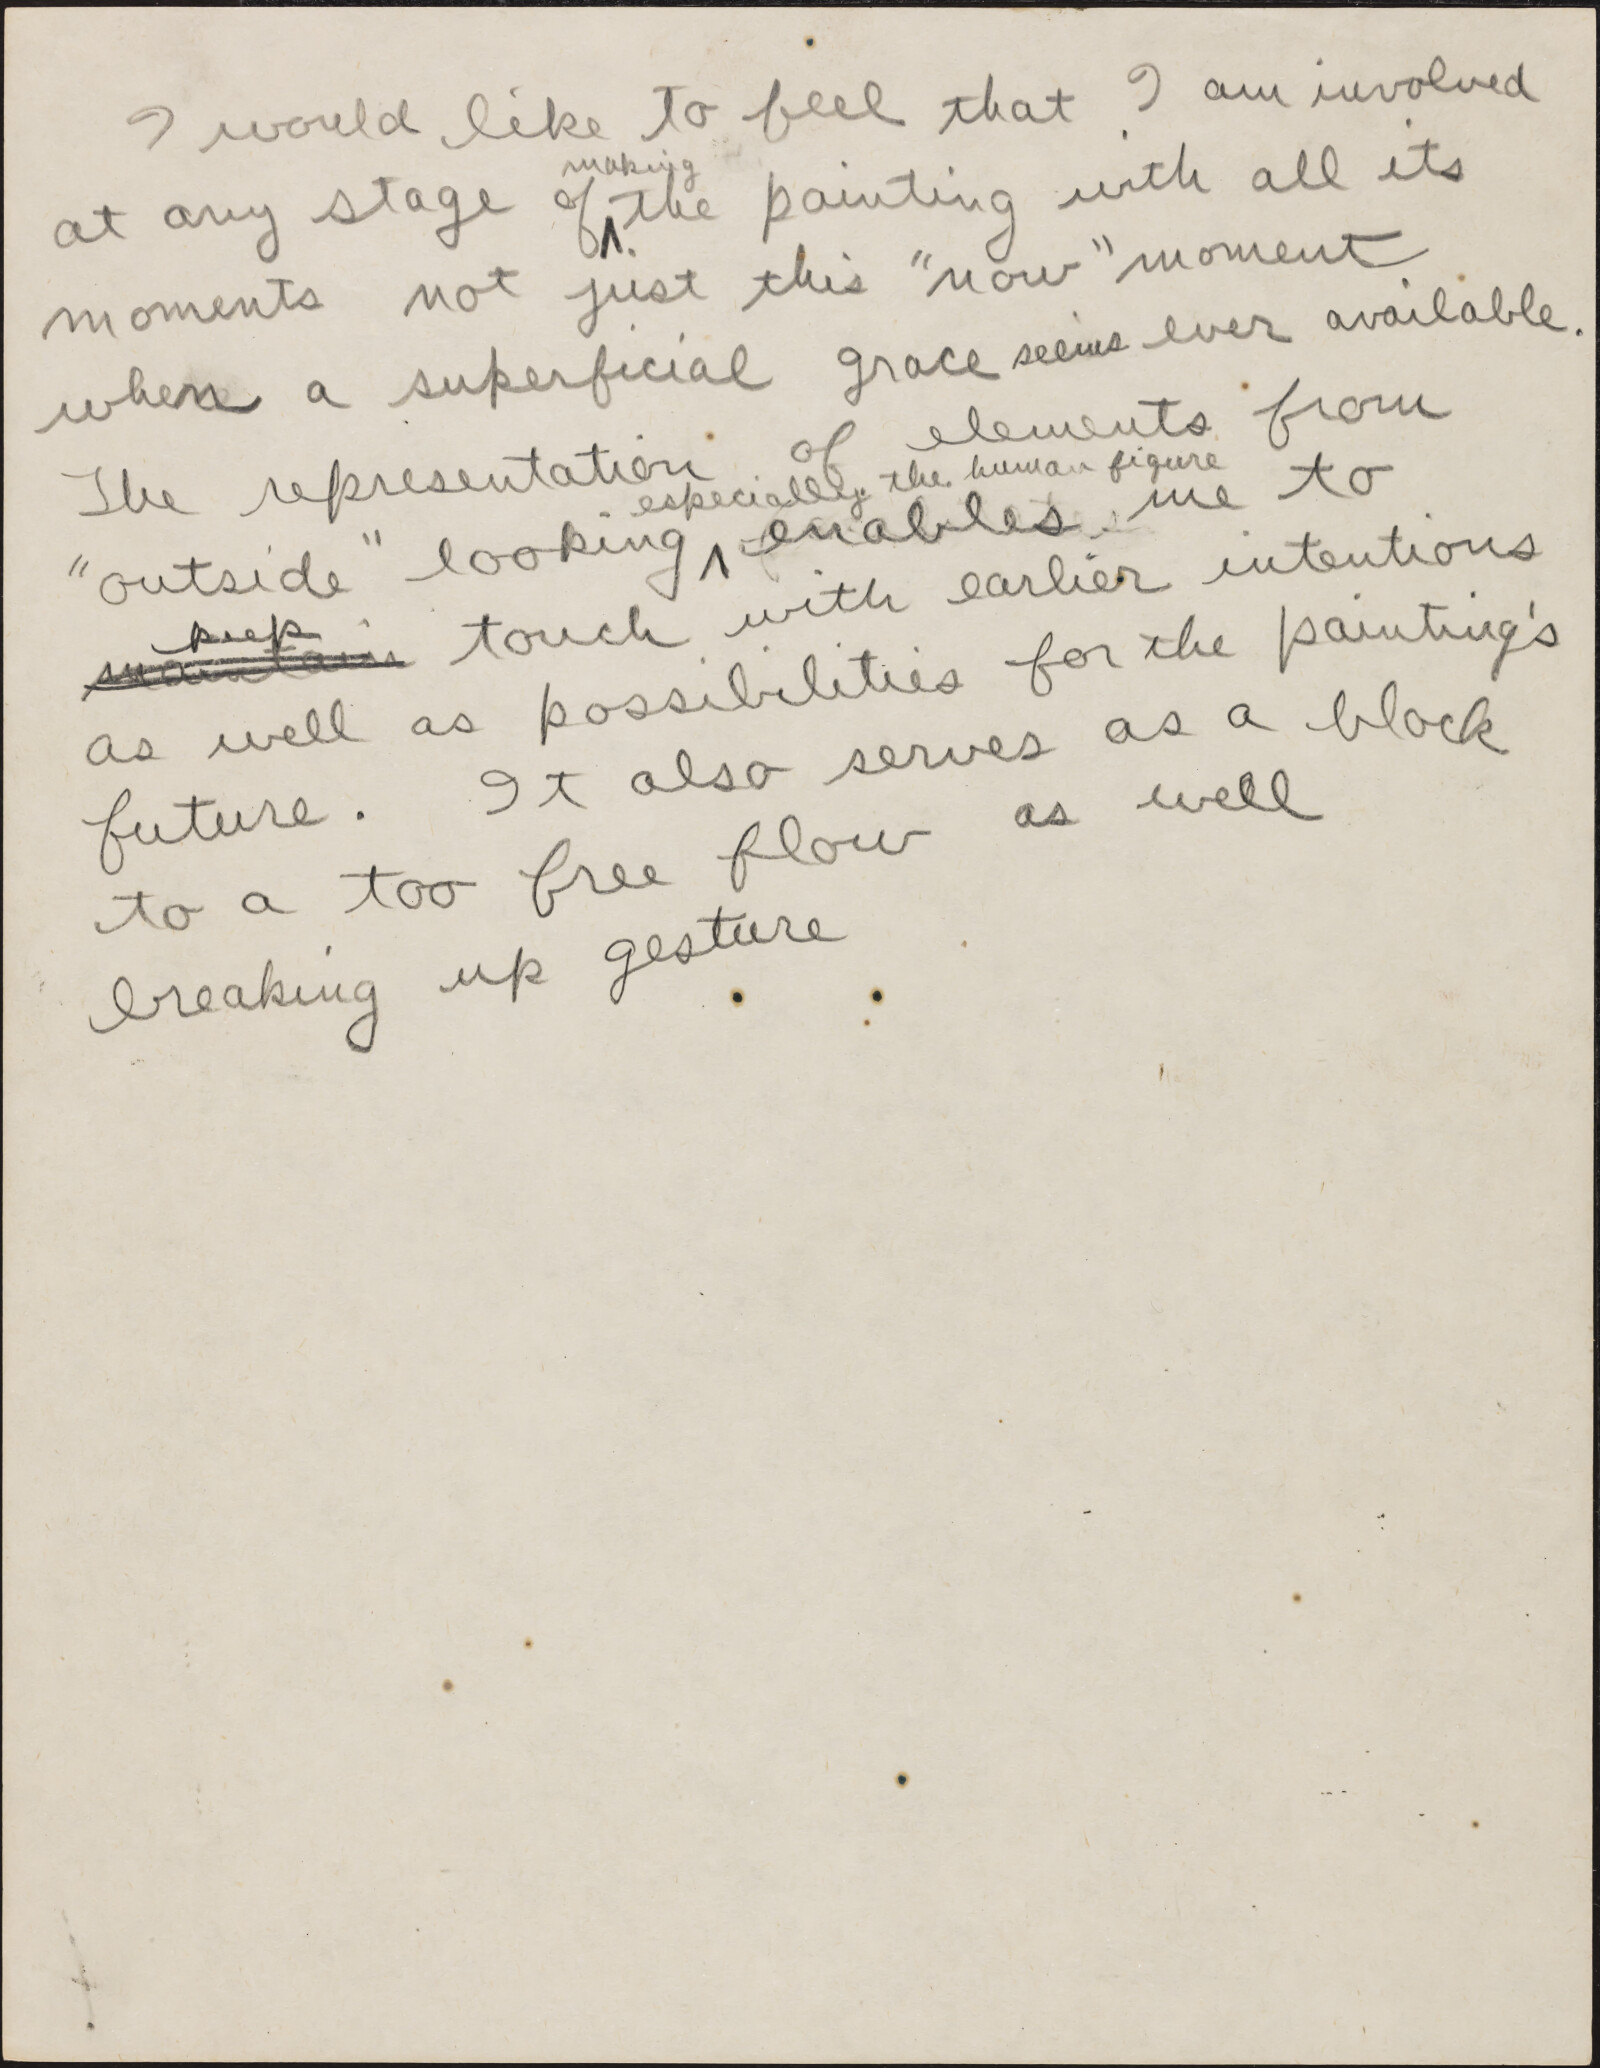 I would like to feel that I am involved
at any stage of making the painting with all its
moments not just this "now" moment
where a superficial grace seems ever available.
The representation of elements from
"outside" looking especially the human figure enables me to
keep maintain touch with earlier intentions
as well as possibilities for the painting's
future. It also serves as a block
to a too free flow as well
breaking up gesture